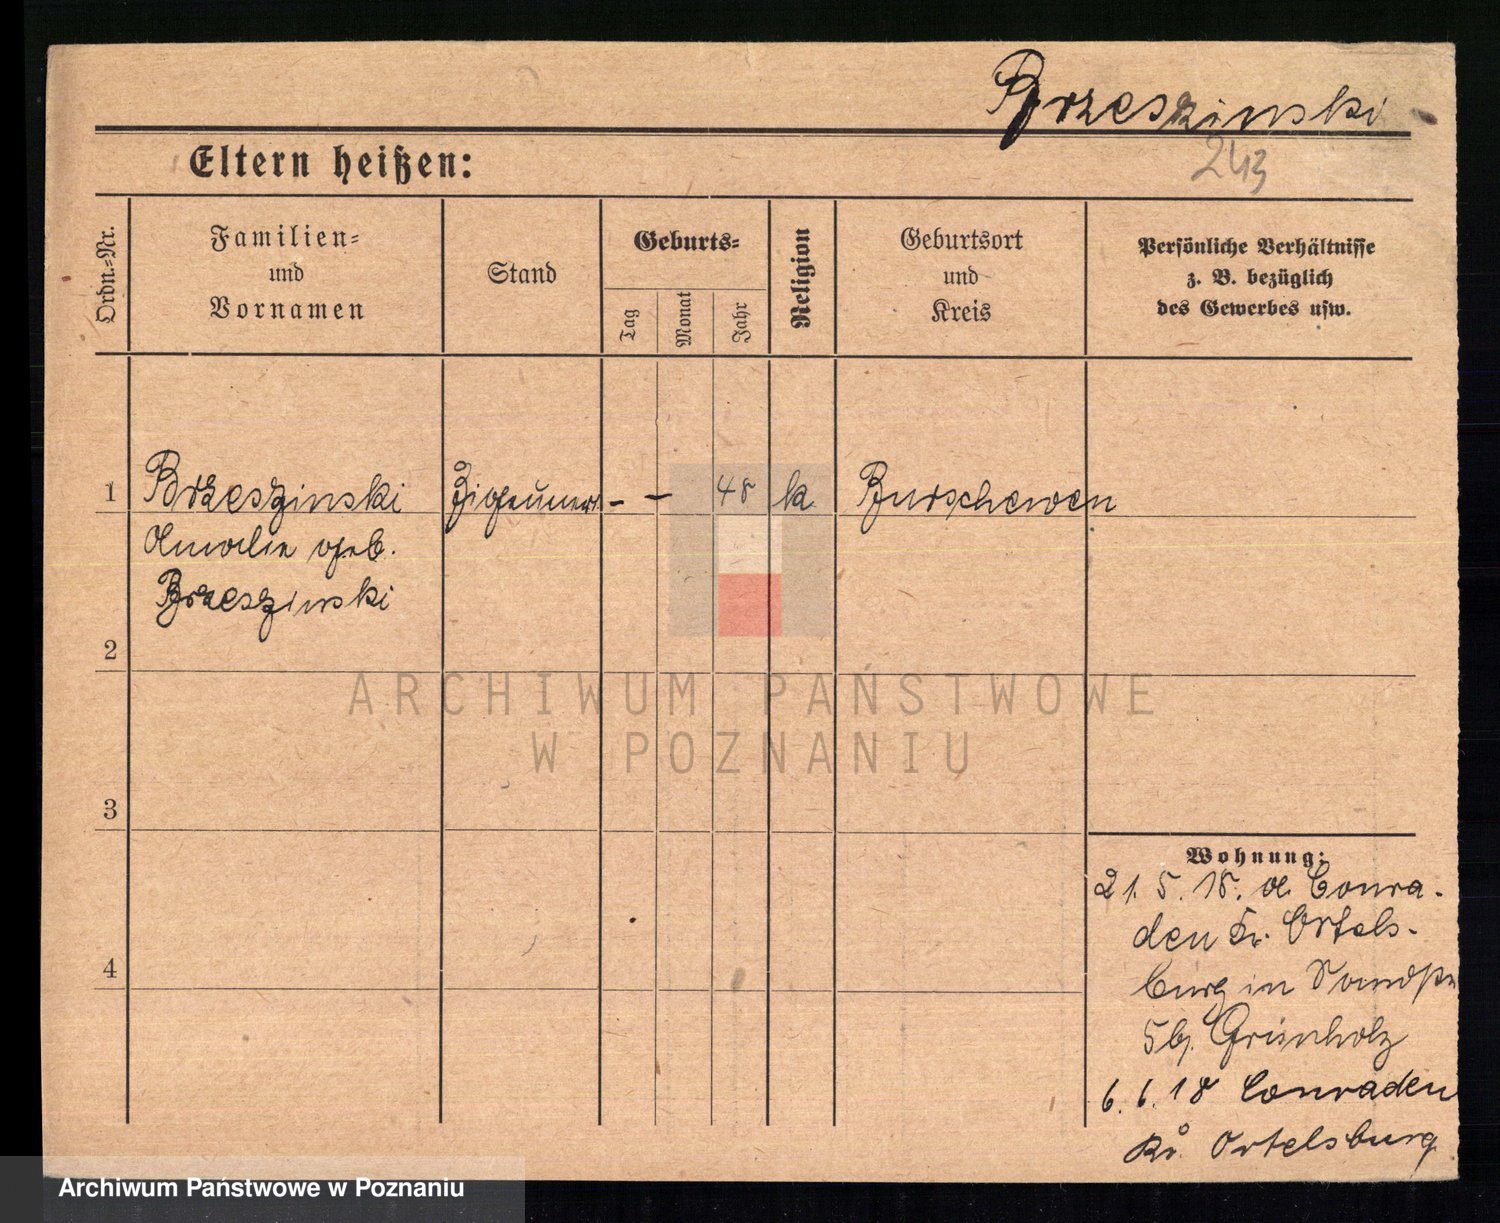 Brzeszinski
243
Eltern heißen:
Ordn.=Nr.
Familien=
und
Vornamen
Stand
Geburts=
Tag
Monat
Jahr
Religion
Geburtsort
und
Kreis
Persönliche Verhältnisse
z. B. bezüglich
des Gewerbes usw.
1 Brzeszinski Zigeuner - - 48 k Burschewen
Amalie geb.
Brzeszinski
2
3
4
Wohnung:
21. 5. 18. a. Conra-
den Kr. Ortels-
burg in
5 b. Grünholz
6. 6. 18 Conraden
Kr. Ortelsburg
ARCHIWUM PAŃSTWOWE
W POZNANIU
Archiwum Państwowe w Poznaniu